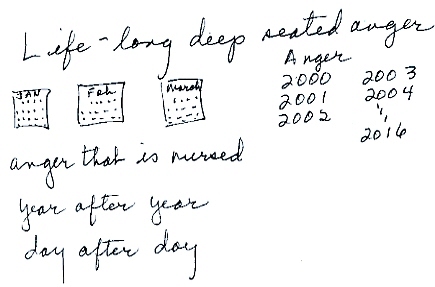 Life-long deep seated anger
JAN Feb March
Anger
2000 2003
2001 2004
2002 "
2016
anger that is nursed
year after year
day after day